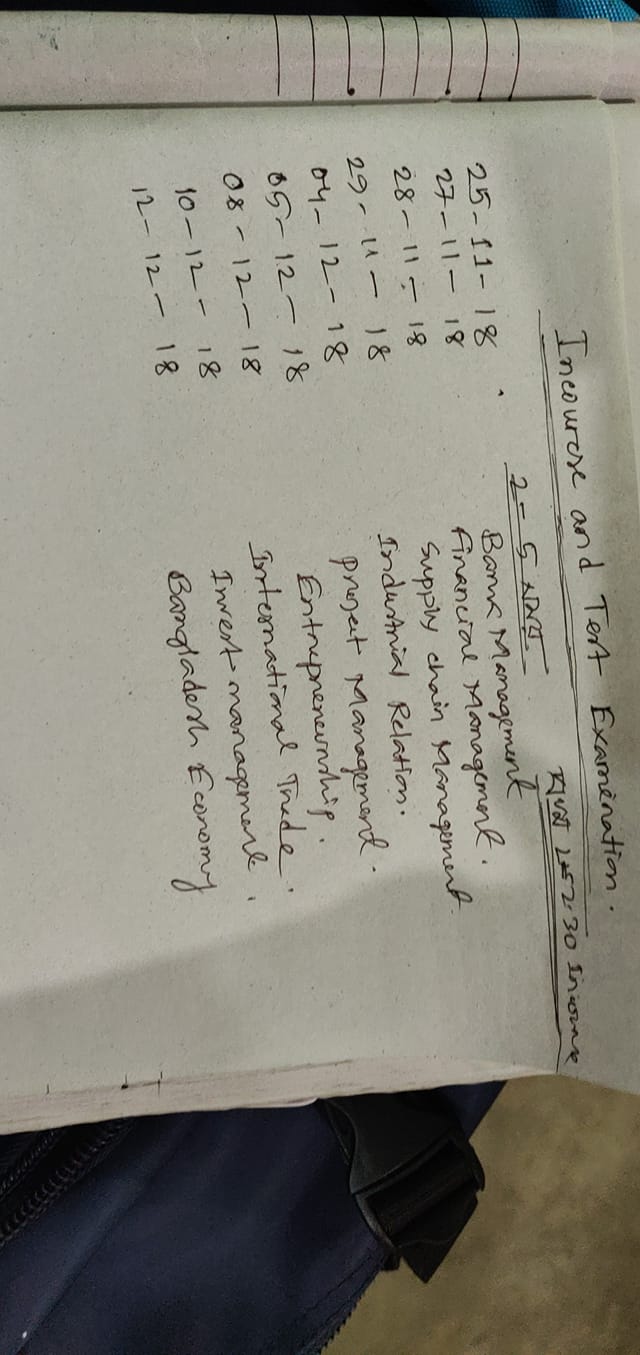 Incourse and Test Examination.
1-2.30 Incourse
2-5
25-11-18 Bank Management
27-11-18 Financial Management.
28-11-18 Supply chain Management
29-11-18 Industrial Relation.
04-12-18 Project Management.
05-12-18 Entrepreneurship.
08-12-18 International Trade.
10-12-18 Invest management.
12-12-18 Bangladesh Economy